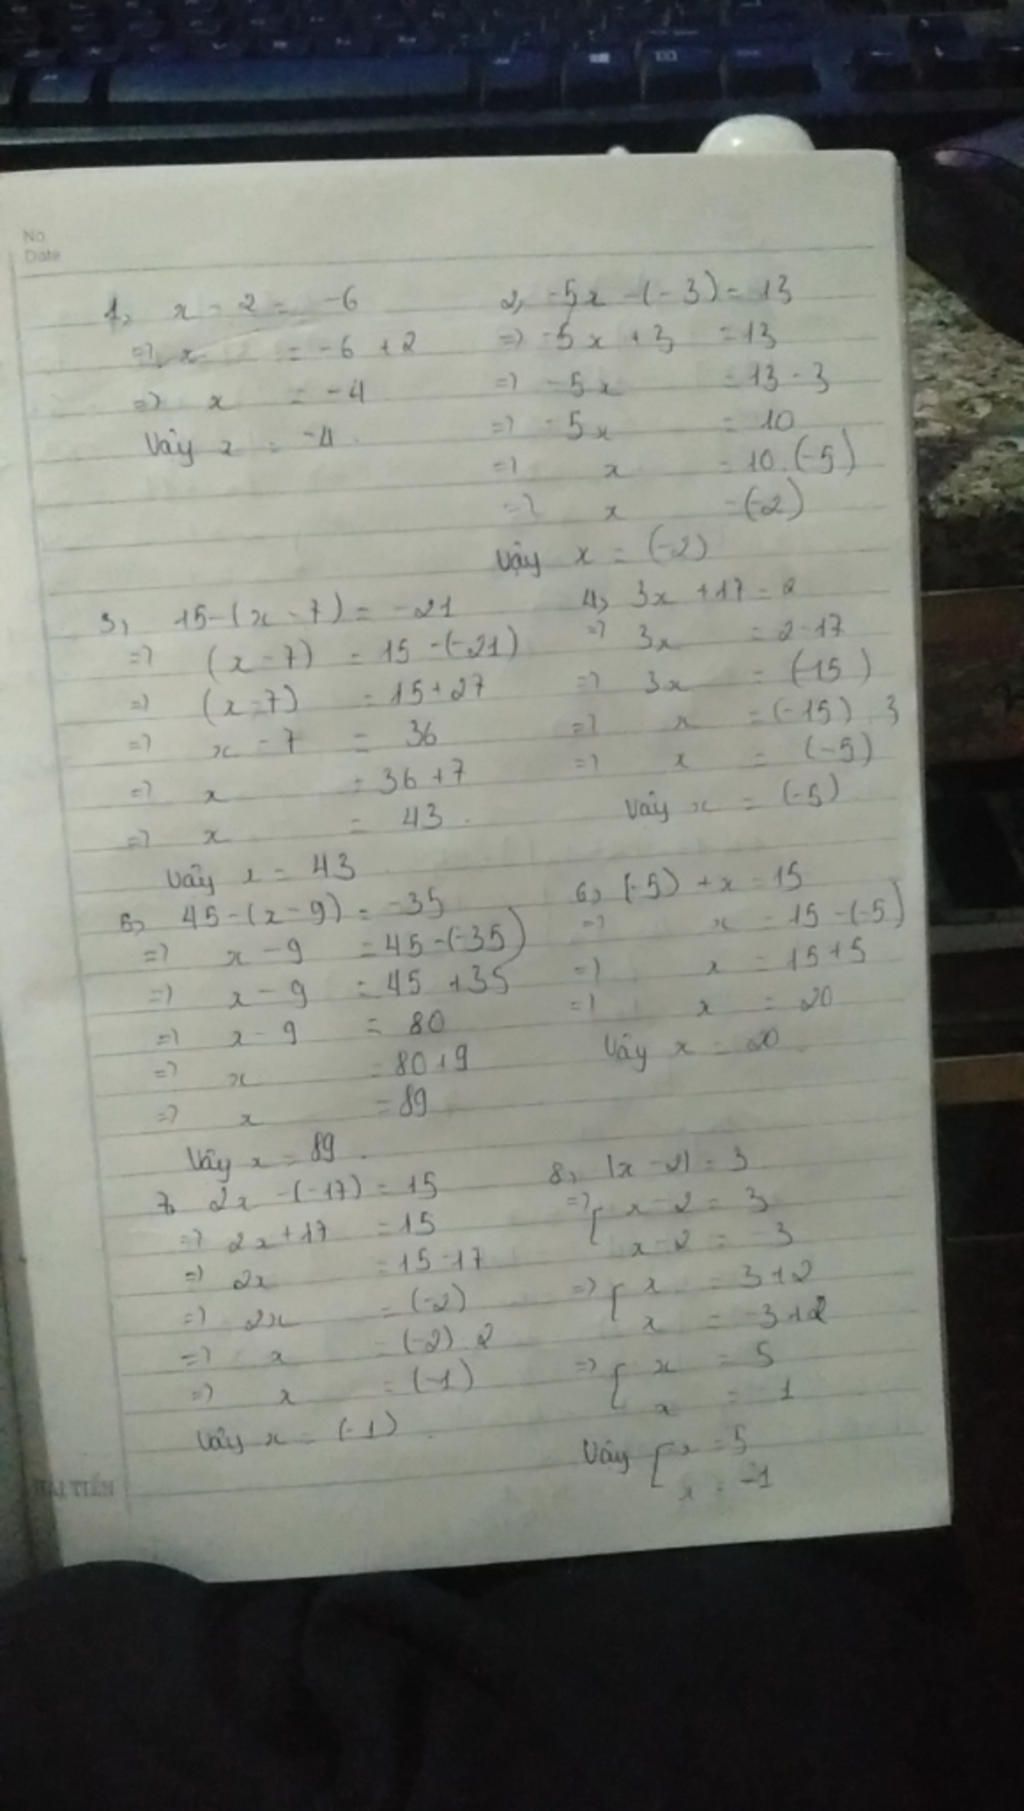 No.
Date
1, x - 2 = -6
=> x = -6 + 2
=> x = -4
Vậy x = -4.
2, -5x - (-3) = 13
=> -5x + 3 = 13
=> -5x = 13 - 3
=> -5x = 10
=> x = 10 : (-5)
=> x = (-2)
Vậy x = (-2)
3, 15 - (x - 7) = -21
=> (x - 7) = 15 - (-21)
=> (x - 7) = 15 + 21
=> x - 7 = 36
=> x = 36 + 7
=> x = 43.
Vậy x = 43
4, 3x + 17 = 2
=> 3x = 2 - 17
=> 3x = (-15)
=> x = (-15) : 3
=> x = (-5)
Vậy x = (-5)
5, 45 - (x - 9) = -35
=> x - 9 = 45 - (-35)
=> x - 9 = 45 + 35
=> x - 9 = 80
=> x = 80 + 9
=> x = 89
Vậy x = 89.
6, (-5) + x = 15
=> x = 15 - (-5)
=> x = 15 + 5
=> x = 20
Vậy x = 20.
7, 2x - (-17) = 15
=> 2x + 17 = 15
=> 2x = 15 - 17
=> 2x = (-2)
=> x = (-2) : 2
=> x = (-1)
Vậy x = (-1).
8, |x - 2| = 3
=> [ x - 2 = 3
x - 2 = -3
=> [ x = 3 + 2
x = -3 + 2
=> [ x = 5
x = -1
Vậy [ x = 5
x = -1
HẢI TIẾN